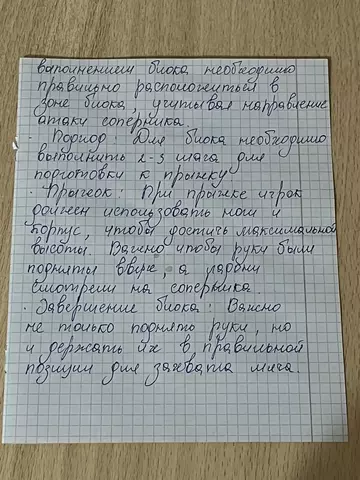 выполнением блока необходимо
правильно расположиться в
зоне блока, учитывая направление
атаки соперника.
· Подход: Для блока необходимо
выполнить 2-3 шага для
подготовки к прыжку
· Прыжок: При прыжке игрок
должен использовать ноги и
корпус, чтобы достичь максимальной
высоты. Важно чтобы руки были
подняты вверх, а ладони
смотрели на соперника.
· Завершение блока: Важно
не только поднять руки, но
и держать их в правильной
позиции для захвата мяча.